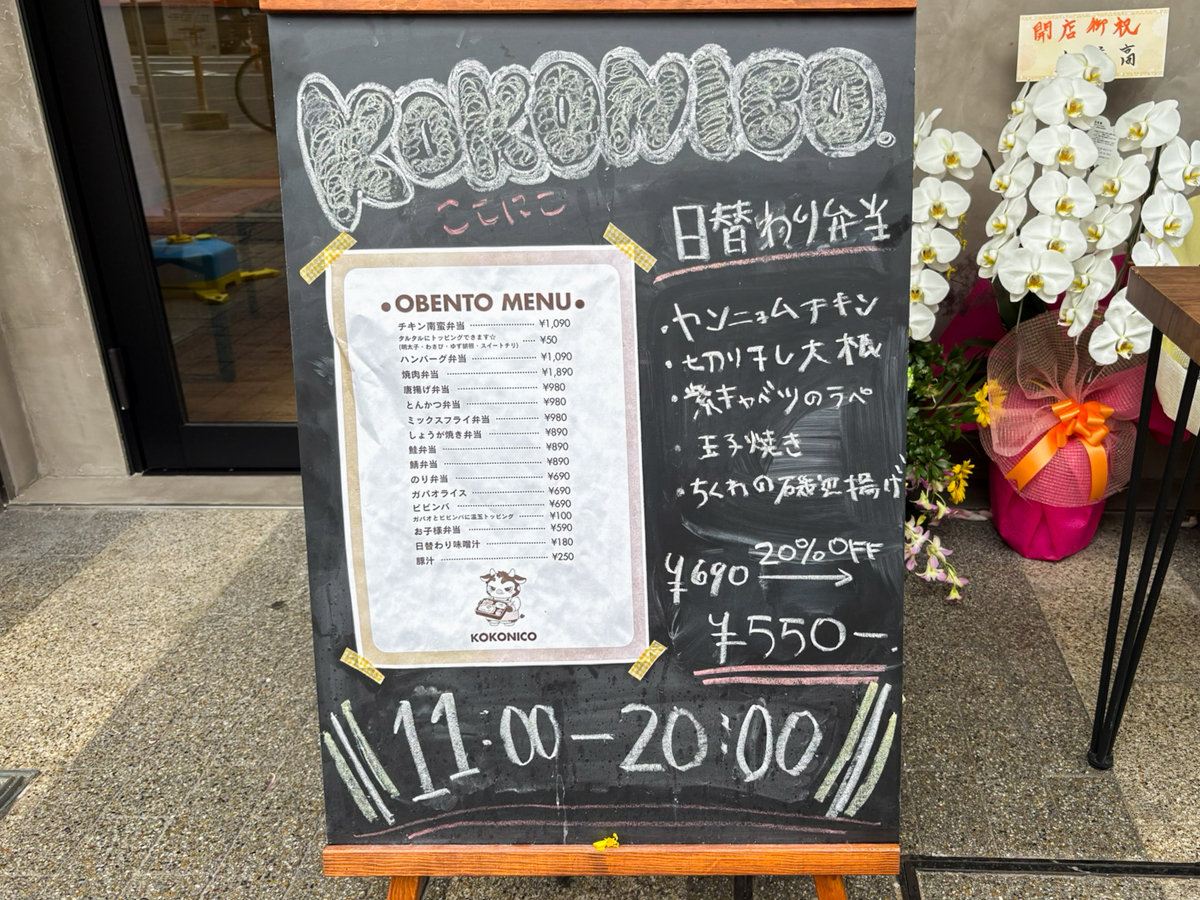 KOKONICO.
ここにこ
•OBENTO MENU•
チキン南蛮弁当 ¥1,090
タルタルにトッピングできます☆ ¥50
(明太子・わさび・ゆず胡椒・スイートチリ)
ハンバーグ弁当 ¥1,090
焼肉弁当 ¥1,890
唐揚げ弁当 ¥980
とんかつ弁当 ¥980
ミックスフライ弁当 ¥980
しょうが焼き弁当 ¥890
鮭弁当 ¥890
鯖弁当 ¥890
のり弁当 ¥690
ガパオライス ¥690
ビビンバ ¥690
ガパオとビビンバに温玉トッピング ¥100
お子様弁当 ¥590
日替わり味噌汁 ¥180
豚汁 ¥250
KOKONICO
日替わり弁当
・ヤンニョムチキン
・切り干し大根
・紫キャベツのラペ
・玉子焼き
・ちくわの磯辺揚げ
¥690 20%OFF
¥550-
11:00-20:00
開店御祝